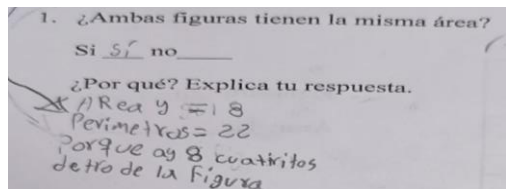 1. ¿Ambas figuras tienen la misma área?
Si Sí no____
¿Por qué? Explica tu respuesta.
ARea y = 18
Perimetros = 22
Porque ay 8 cuatiritos
detro de la Figura